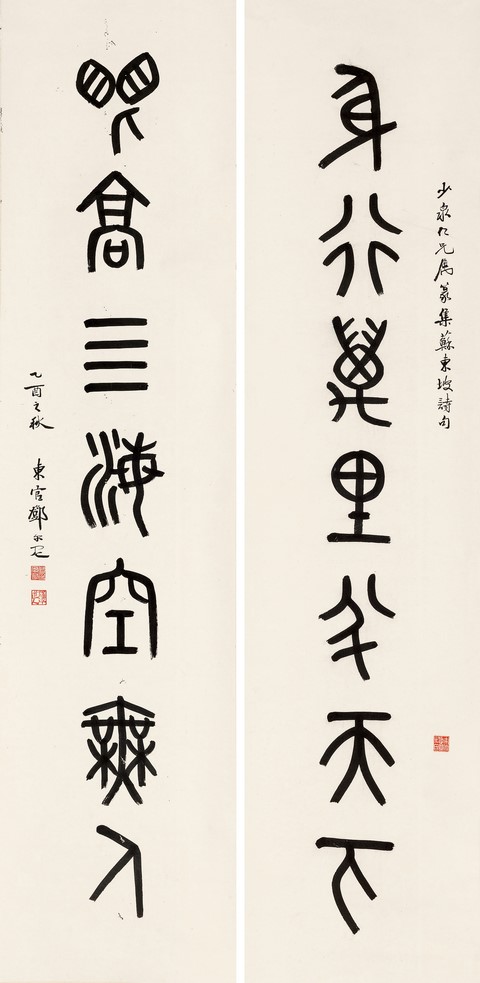 少泉仁兄屬篆集蘇東坡詩句
身行萬里半天下
眼高四海空無人
乙酉之秋 東官鄧尔疋